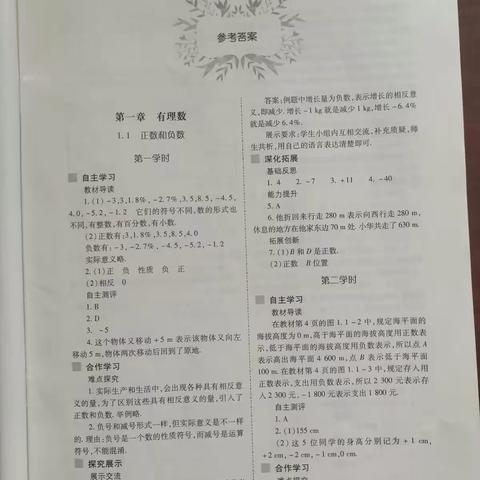 参考答案
第一章 有理数
1.1 正数和负数
第一学时
自主学习
教材导读
1. (1) -3,3,1.8%, -2.7%,3.5,8.5, -4.5,
4.0, -5.2, -1.2 它们的符号不同,数的形式也
不同,有整数,有百分数,有小数.
(2)正数有:3,1.8%,3.5,8.5,4.0
负数有: -3, -2.7%, -4.5, -5.2, -1.2
实际意义略.
2. (1)正 负 性质 负 正
(2)相反 0
自主测评
1. B
2. D
3. -5
4. 这个物体又移动 +5 m 表示该物体又向左
移动 5 m,物体两次移动后回到了原地.
合作学习
难点探究
1. 实际生产和生活中,会出现各种具有相反意
义的量,为了区别这些具有相反意义的量,引入了
正数和负数. 举例略.
2. 负号和减号形式一样,但实际意义是不一样
的. 理由:负号是一个数的性质符号,而减号是运算
符号,不能混淆.
探究展示
展示交流
答案:例题中增长量为负数,表示增长的相反意
义,即减少. 增长 -1 kg 就是减少 1 kg,增长 -6.4%
就是减少 6.4%.
展示要求:学生小组内互相交流,补充质疑,师
生共析,用自己的语言表达清楚即可.
深化拓展
基础反思
1. 4 2. -7 3. +11 4. -40
能力提升
5. A
6. 他折回来行走 280 m 表示向西行走 280 m,
休息的地方在他家东边 70 m 处. 小华共走了 630 m.
拓展创新
7. (1)B 和 D 是正数.
(2)正数 B 位置
第二学时
自主学习
教材导读
在教材第 4 页的图 1.1-2 中,规定海平面的
海拔高度为 0 m,高于海平面的海拔高度用正数表
示,低于海平面的海拔高度用负数表示,所以点 A
表示高出海平面 4 600 m,点 B 表示低于海平面
100 m. 在教材第 4 页的图 1.1-3 中,规定存入用
正数表示,支出用负数表示,所以 2 300 元表示存
入 2 300 元, -1 800 元表示支出 1 800 元.
自主测评
1. A
2. (1)155 cm
(2)这 5 位同学的身高分别记为 +1 cm,
+2 cm, -2 cm, -1 cm,0 cm.
合作学习